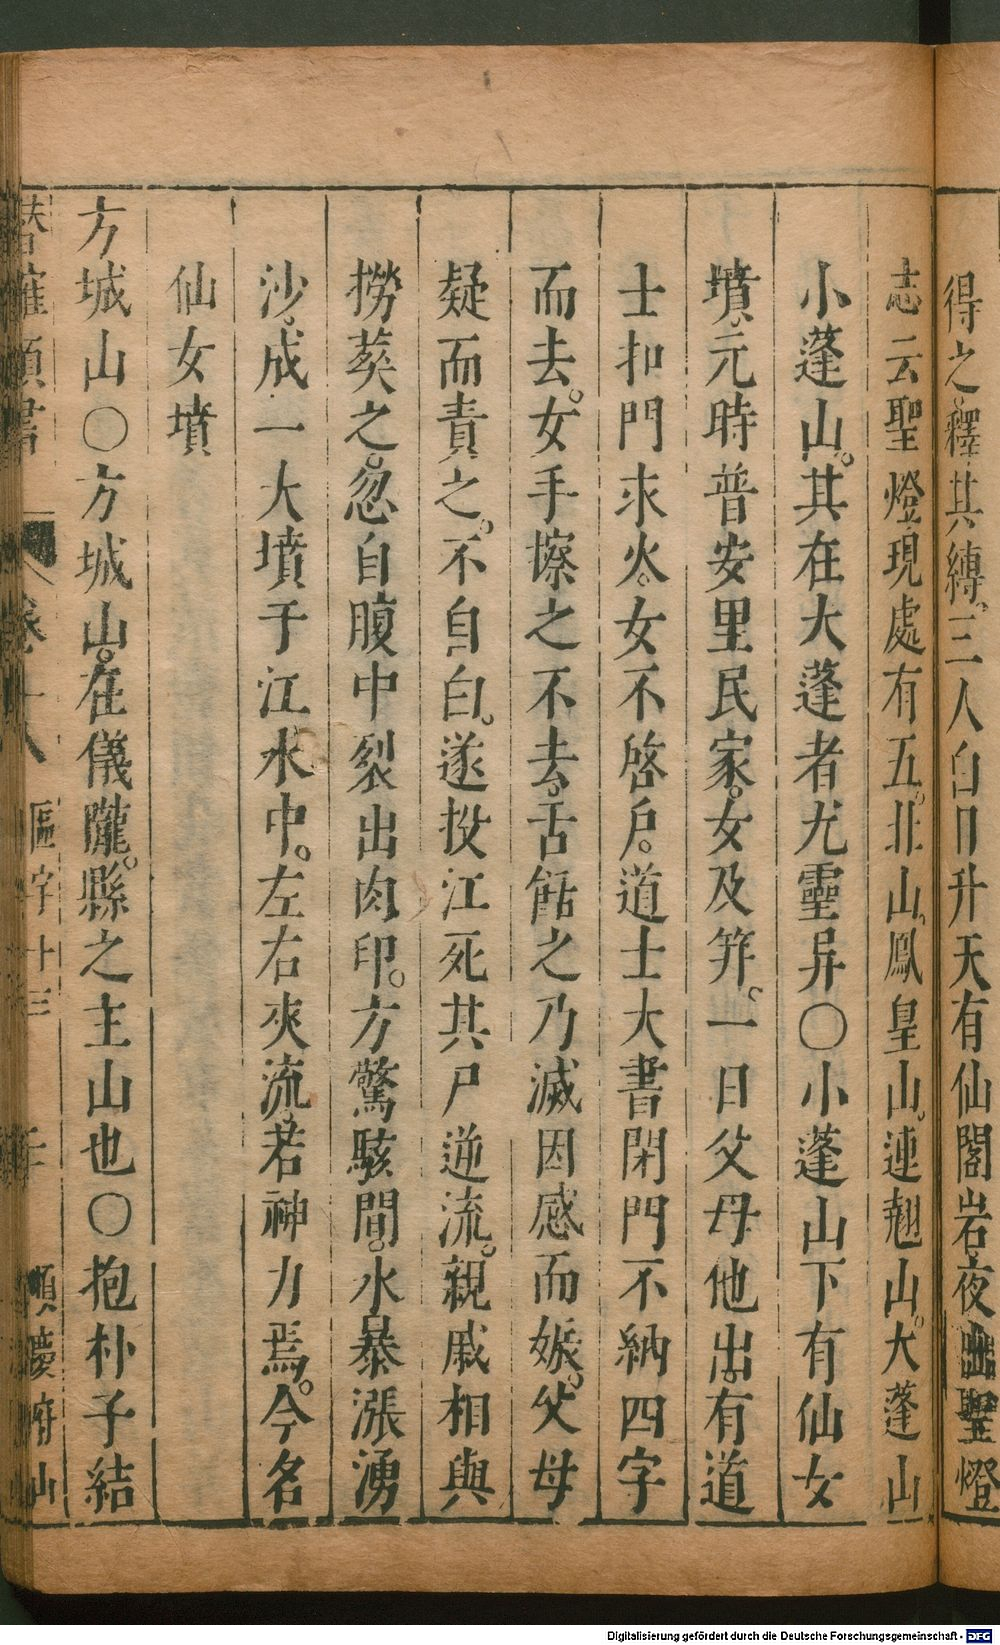 得之釋其縛三人白日升天有仙閣岩夜出聖燈
志云聖燈現處有五北山鳳皇山連翹山大蓬山
小蓬山其在大蓬者尤靈异〇小蓬山下有仙女
墳元時普安里民家女及笄一日父母他出有道
士扣門求火女不啓戶道士大書閑門不納四字
而去女手擦之不去舌餂之乃滅因感而娠父母
疑而責之不自白遂投江死其尸逆流親戚相與
撈葵之忽自腹中裂出肉印方驚駭間水暴漲湧
沙成一大墳于江水中左右夾流若神力焉今名
仙女墳
方城山〇方城山在儀隴縣之主山也〇抱朴子結
卷十八 順慶府山
Digitalisierung gefördert durch die Deutsche Forschungsgemeinschaft - DFG